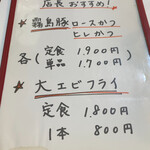 店長おすすめ!
★霧島豚 ロースかつ
ヒレかつ
各(定食 1.900円
単品 1.700円)
★大エビフライ
定食 1.800円
1本 800円